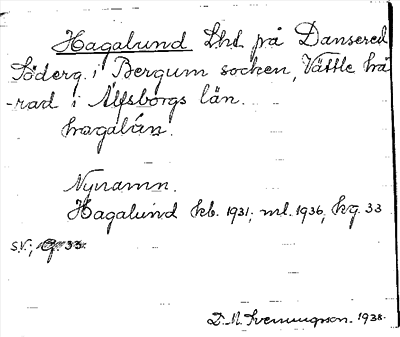 Hagalund Lht på Dansered
Söderg. i Bergum socken, Vättle hä
-rad i Älfsborgs län.
hagalún.
Nynamn.
Hagalund kb. 1931; ml. 1936, kg 33
s.v.;
D. M. Svenningson. 1938.